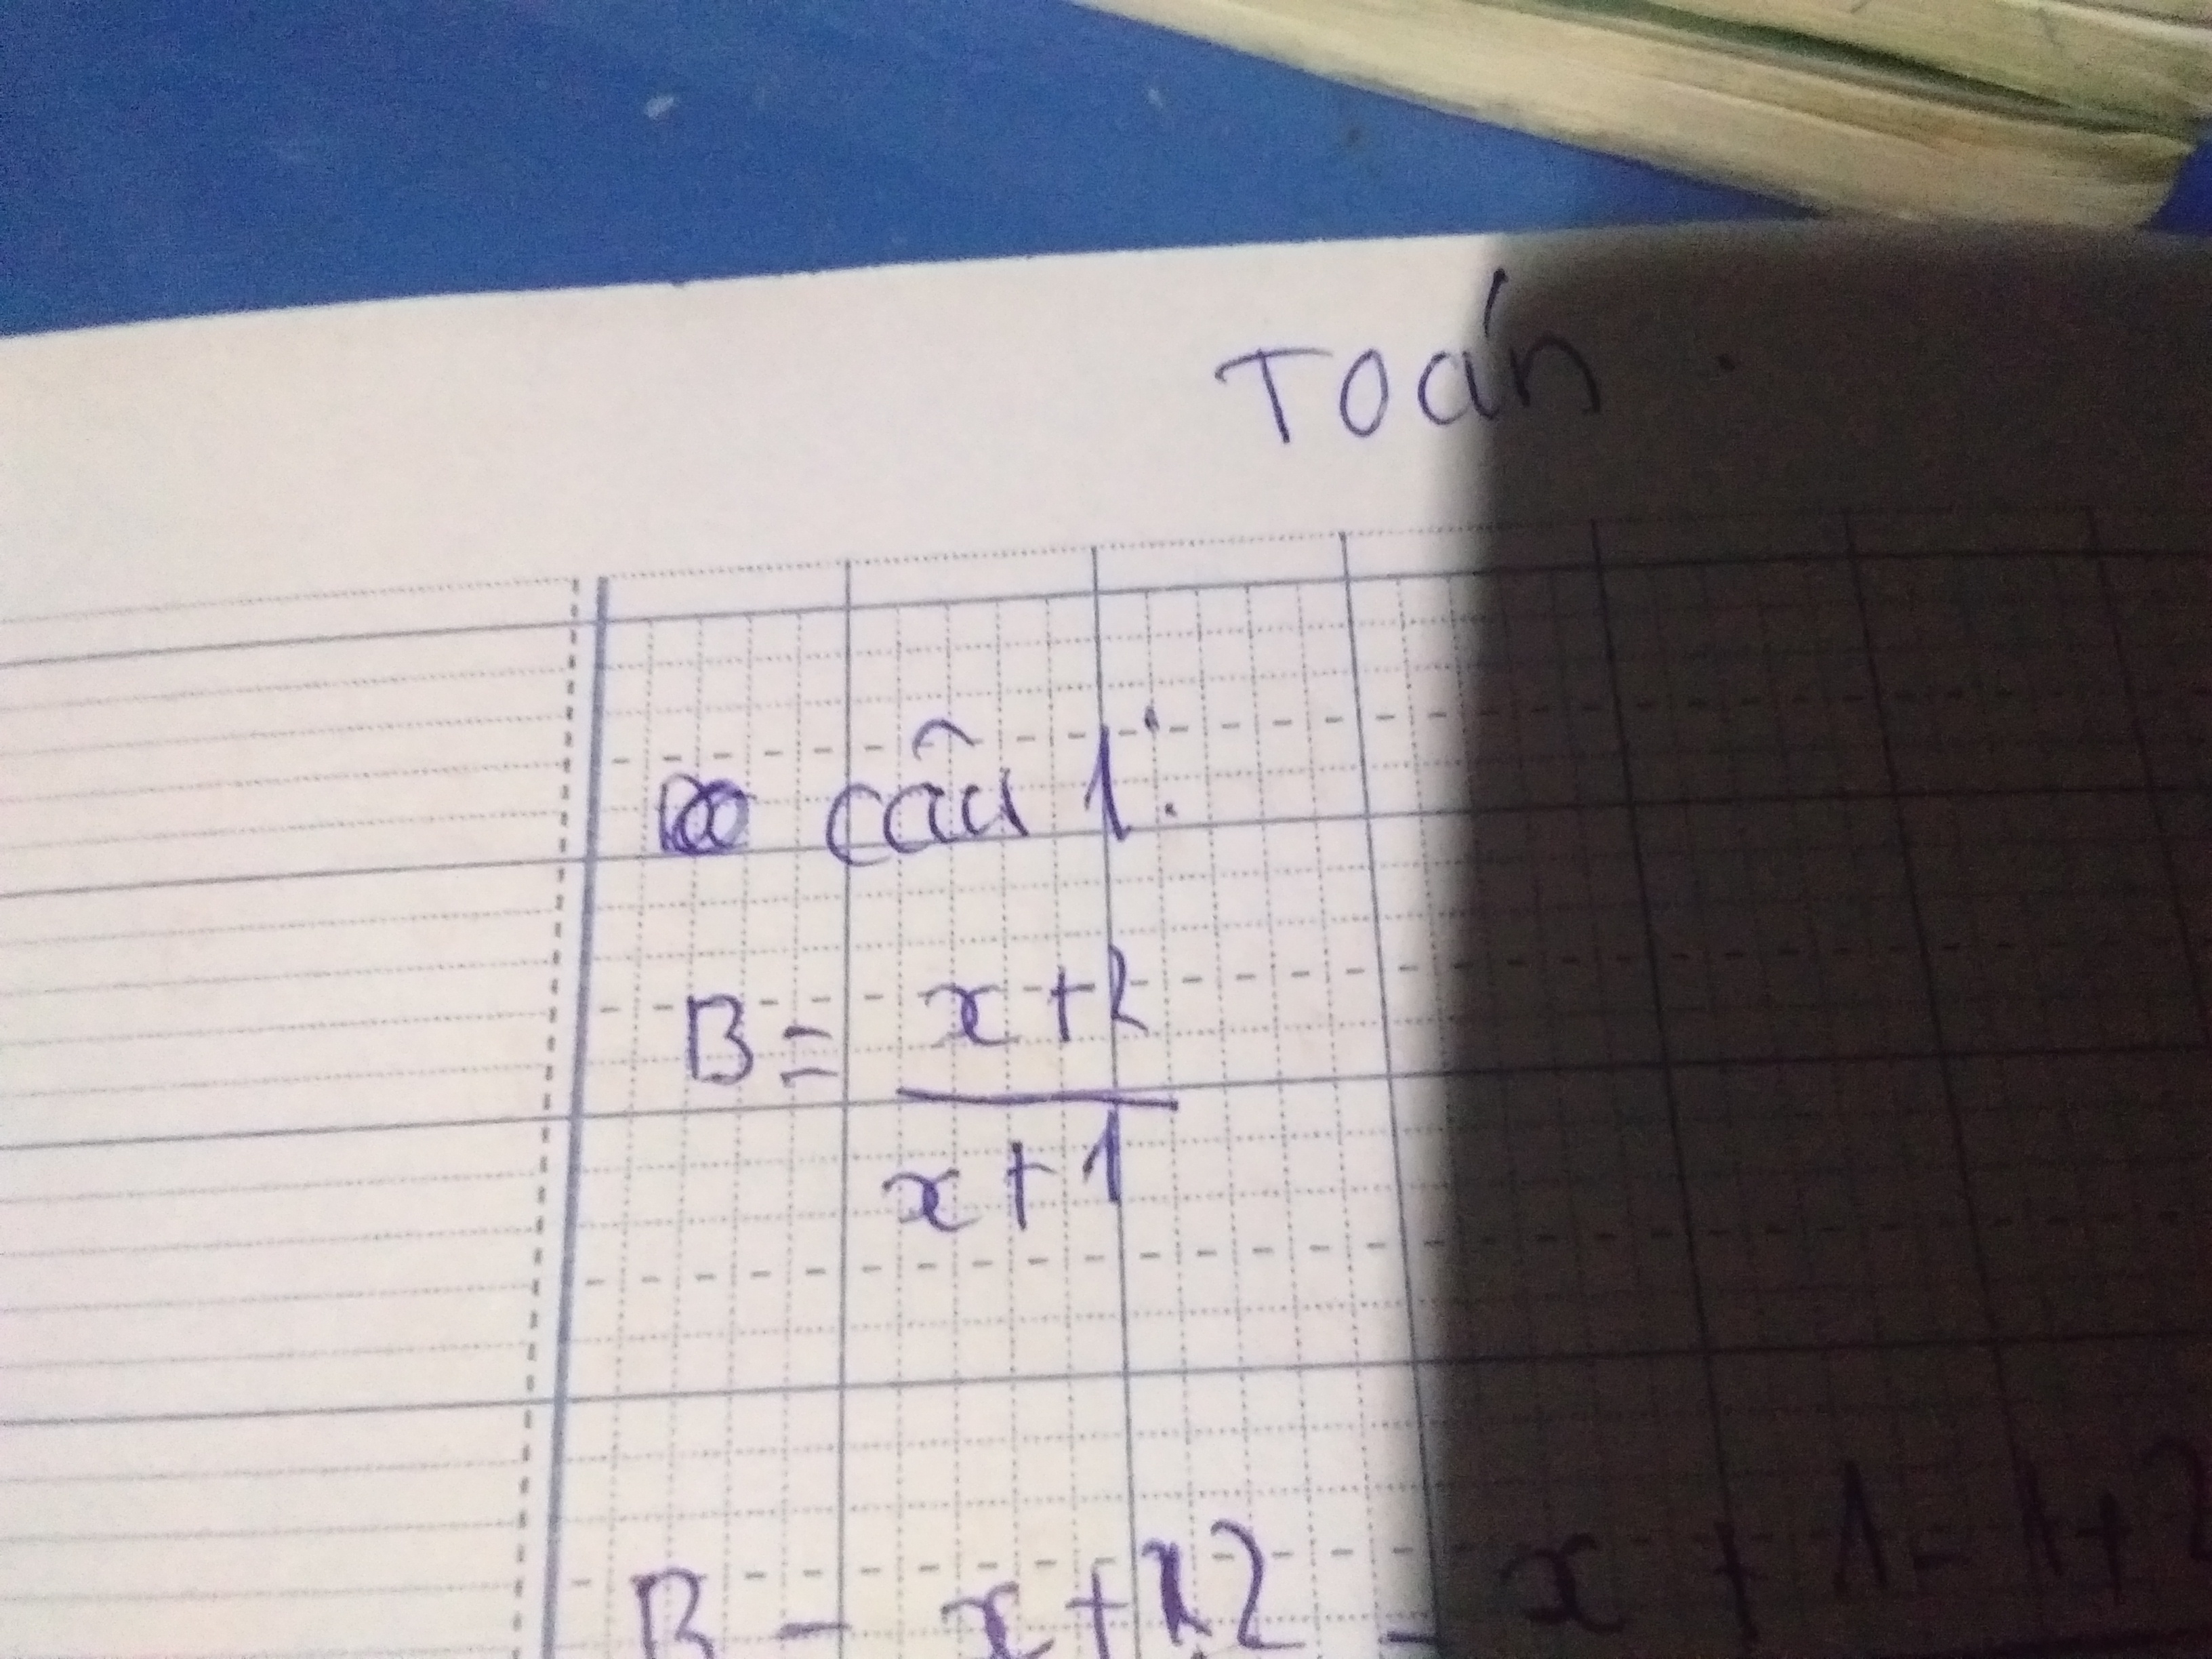 Toán
câu 1:
B = x+2
x+1
B = x+2 = x+1-1+2